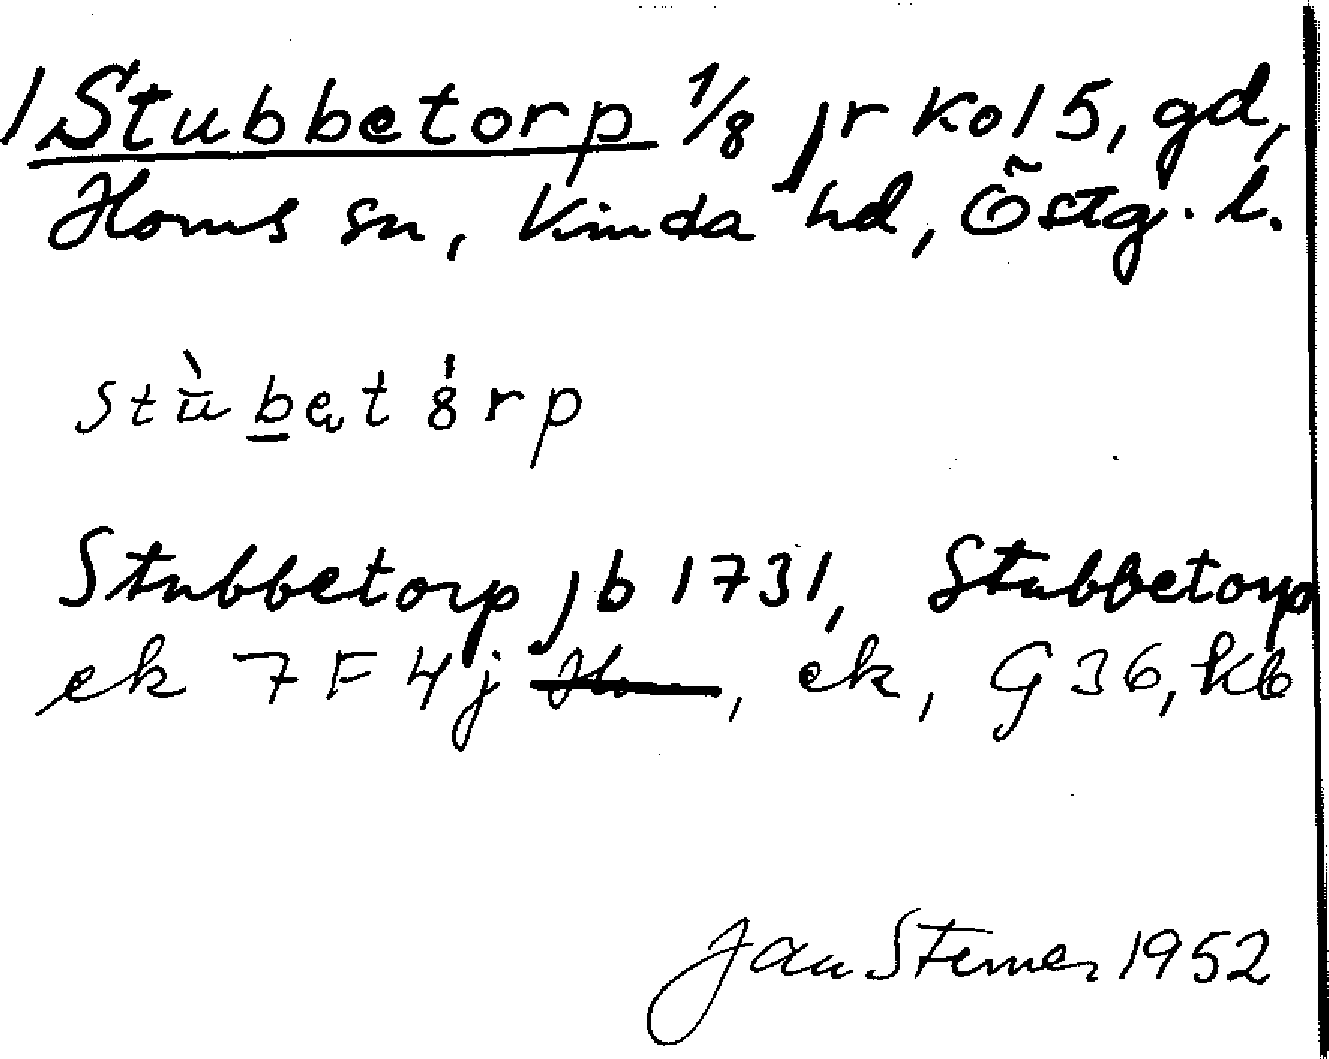 1 Stubbetorp 1/8 jr Ko15, gd,
Horns sn, Kinda hd, Östg. l.
stùb̲ętó̤rp
Stubbetorp jb 1731, Stubbetorp
ek 7F4j, ek, G36, kb
Jan Sterner 1952